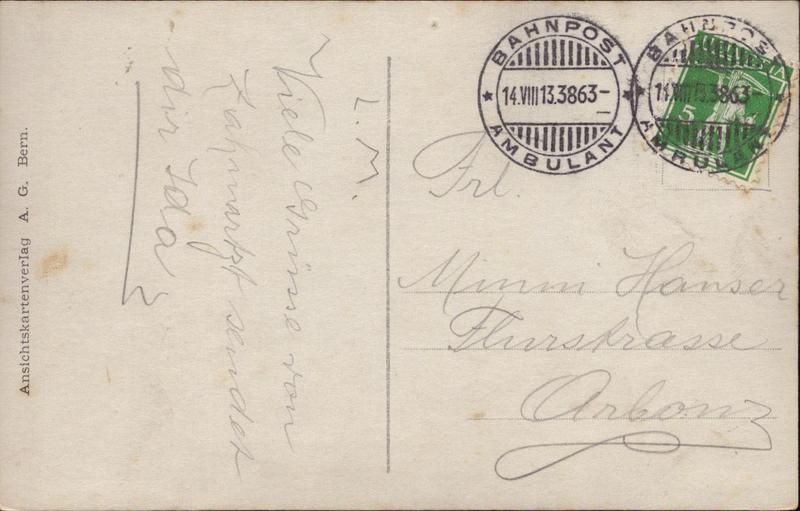 Ansichtskartenverlag A. G. Bern.
L. M.
Viele Grüsse von
Zahnarzt sendet
dir Ida
BAHNPOST
14.VIII13.3863–
AMBULANT
BAHNPOST
14.VIII13.3863–
AMBULANT
5
Frl.
Minni Hanser
Flurstrasse
Arbon